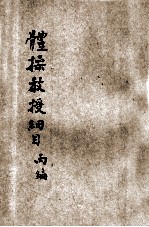 體操教授細目 丙編